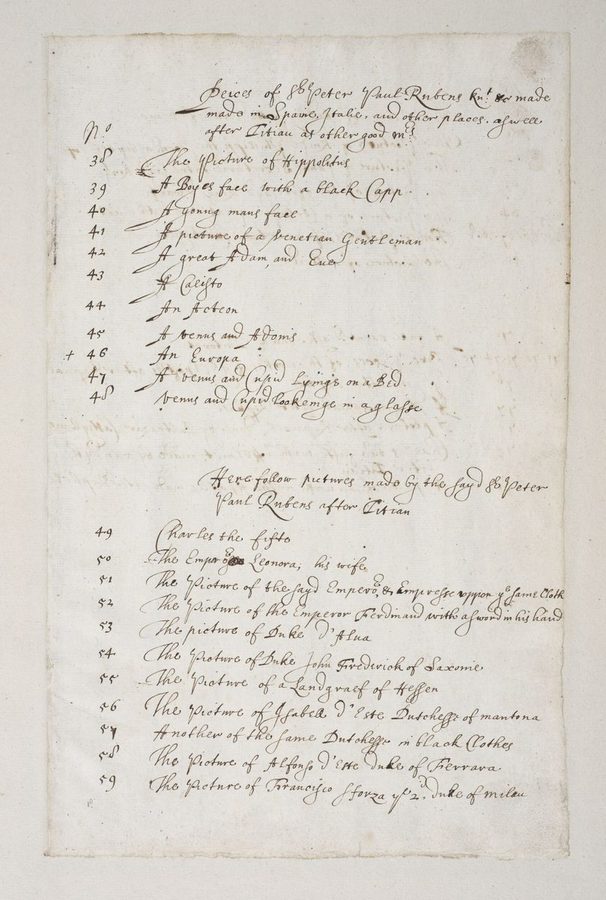 Peices of Sr Peter Paul Rubens Knt &c made
made in Spaine, Italie, and other places. aswell
after Titian as other good mrs
No
38 The Picture of Hippolitus
39 A Boyes face with a black Capp.
40 A young mans face
41 A picture of a Venetian Gentleman
42 A great Adam, and Eve
43 A Calisto
44 An Acteon
45 A Venus and Adonis
+ 46 An Europa
47 A Venus and Cupid Lyinge on a Bed.
48 Venus and Cupid lookeinge in a glasse
Here follow pictures made by the sayd Sr Peter
Paul Rubens after Titian
49 Charles the fifte
50 The Leonora, his wife
51 The Picture of the sayd Empero & Empresse uppon ye same Cloth
52 The Picture of the Emperor Ferdinand with a sword in his hand
53 The picture of Duke d'Alua
54 The Picture of Duke John Frederick of Saxonie
55 The Picture of a Landgraef of Hessen
56 The Picture of Isabell d'Este Dutchesse of mantona
57 Another of the same Dutchesse in black Clothes
58 The Picture of Alfonso d'Este duke of Ferrara
59 The Picture of Francisco Sforza ye 2d. duke of milan